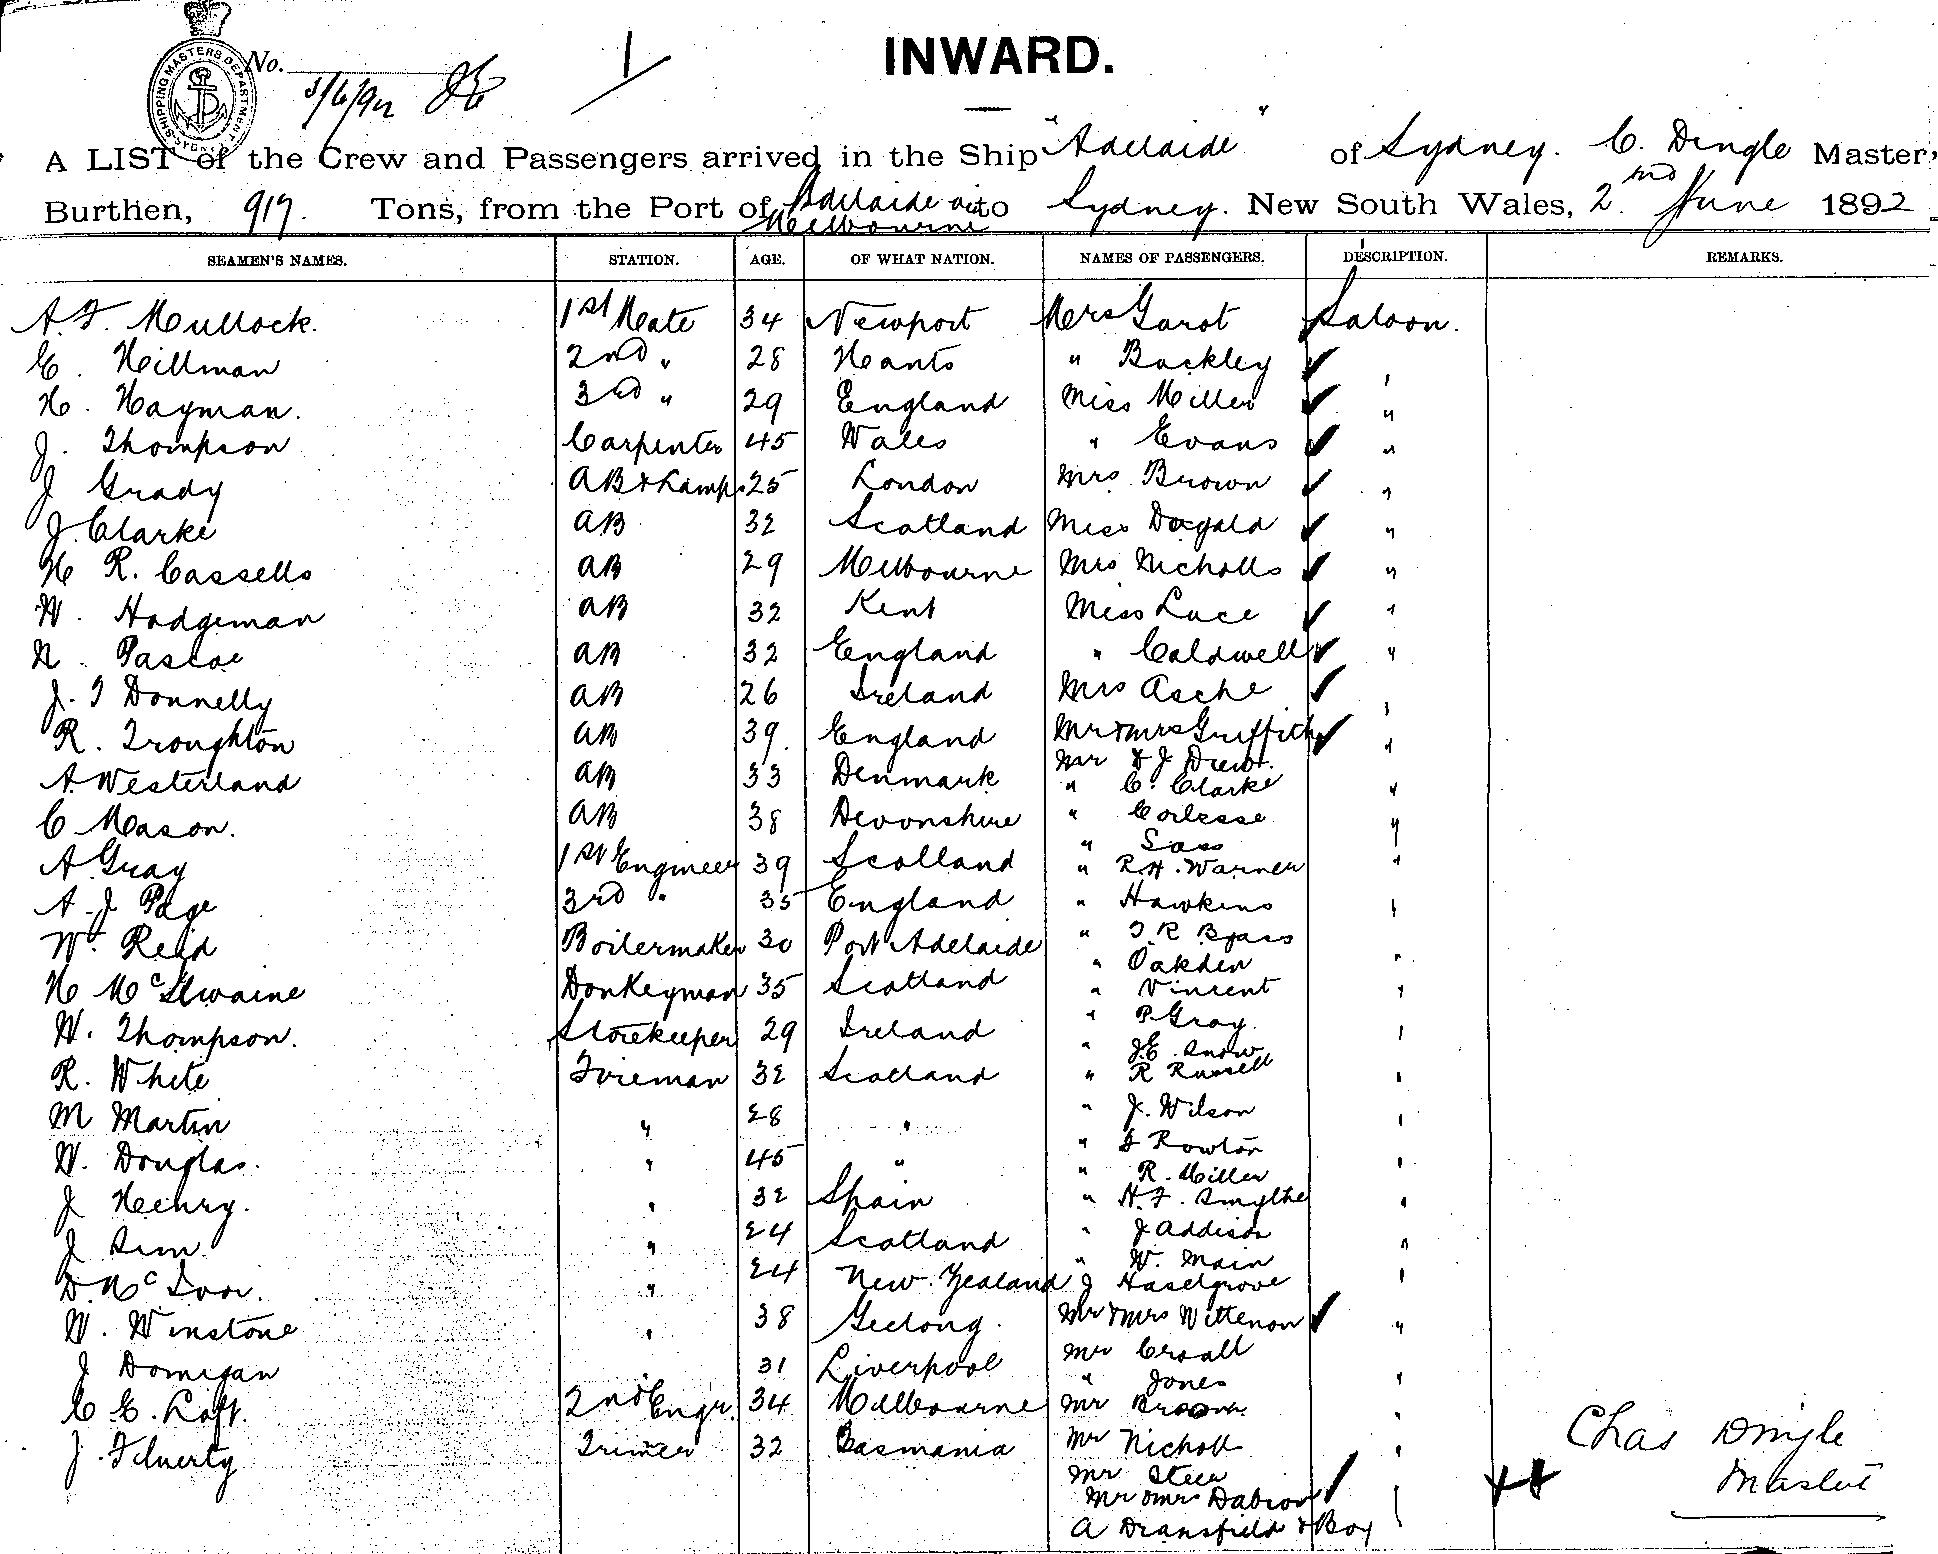 SHIPPING MASTERS DEPARTMENT SYDNEY
No.
3/6/92
1
INWARD.
A LIST of the Crew and Passengers arrived in the Ship "Adelaide" of Sydney. C. Dingle Master,
Burthen, 917. Tons, from the Port of Adelaide via Melbourne to Sydney. New South Wales, 2nd June 1892
SEAMEN'S NAMES. STATION. AGE. OF WHAT NATION. NAMES OF PASSENGERS. DESCRIPTION. REMARKS.
A. F. Mullock. 1st Mate 34 Newport Mrs Garot Saloon.
C. Hillman 2nd " 28 Hants " Backley "
H. Hayman. 3rd " 29 England Miss Miller "
J. Thompson Carpenter 45 Wales " Evans "
J Grady AB & Lamps 25 London Mrs Brown "
J. Clarke AB 32 Scotland Miss Dugald "
H R. Cassells AB 29 Melbourne Mrs Nicholls "
W. Hodgeman AB 32 Kent Miss Luce "
N. Pascoe AB 32 England " Caldwell "
J. T Donnelly AB 26 Ireland Mrs Asche "
R. Troughton AB 39 England Mr & Mrs Griffith "
Mr & J Drew.
A. Westerland AB 33 Denmark " C. Clarke "
C Mason. AB 38 Devonshire " Corlesse "
" Sass
A Gray 1st Engineer 39 Scotland " R H. Warner "
A. J Page 3rd " 35 England " Hawkins "
W. Reid Boilermaker 30 Port Adelaide " T. R Byass
" Oakden "
H McIlwaine Donkeyman 35 Scotland " Vincent "
" P. Gray
W. Thompson. Storekeeper 29 Ireland " J. E. Snow "
R. White Fireman 32 Scotland " R Russell "
M Martin " 28 " " J. Wilson "
" Rowton
W. Douglas. " 45 " " R. Miller "
J Henry. " 32 Spain " H. F. Smythe "
" J Addison
J Sim " 24 Scotland " W. Main "
D. McIvor. " 24 New Zealand J Haselgrove "
W. Winstone " 38 Geelong. Mr & Mrs Wittenon "
Mr Croall
J Domigan 31 Liverpool " Jones "
C. E. Loft. 2nd Engr. 34 Melbourne Mr Broom "
J. Flluerty Trimer 32 Tasmania Mr Nicholl "
Mr Steer
Mr & Mrs Dabron
A Dransfield & Boy
Chas Dingle
Master